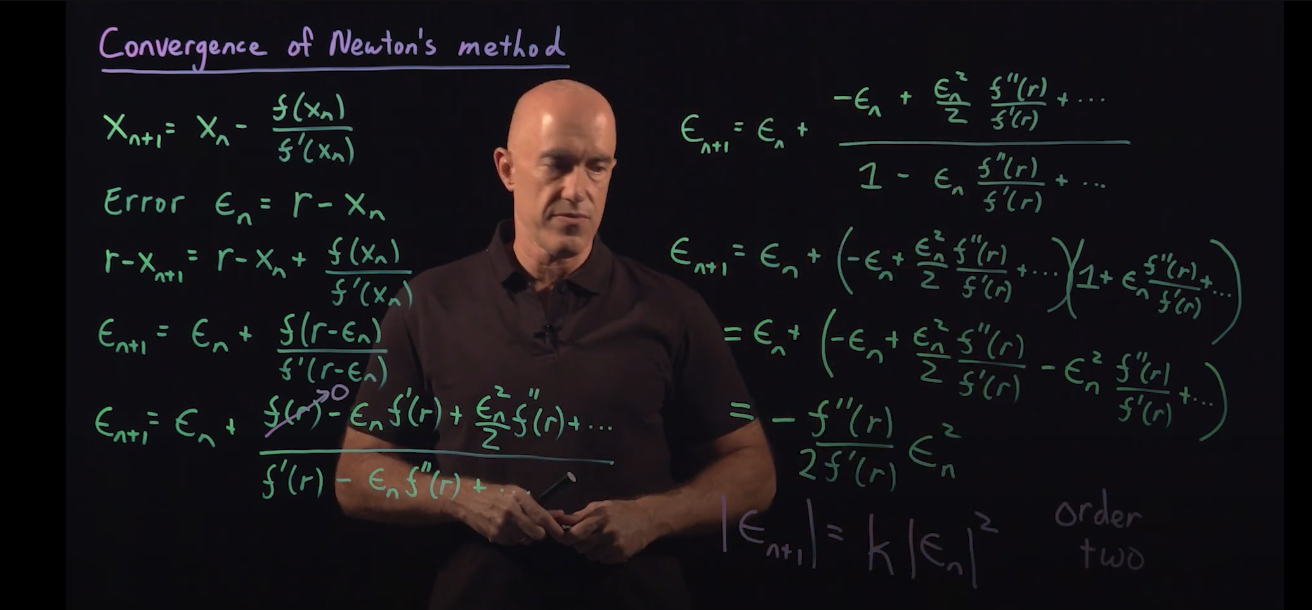 Convergence of Newton's method
xₙ₊₁ = xₙ - f(xₙ)/f'(xₙ)
Error ϵₙ = r - xₙ
r - xₙ₊₁ = r - xₙ + f(xₙ)/f'(xₙ)
ϵₙ₊₁ = ϵₙ + f(r-ϵₙ)/f'(r-ϵₙ)
ϵₙ₊₁ = ϵₙ + (f(r)→0 - ϵₙf'(r) + ϵₙ²/2 f''(r) + ...)/(f'(r) - ϵₙf''(r) + ...)
ϵₙ₊₁ = ϵₙ + (-ϵₙ + ϵₙ²/2 f''(r)/f'(r) + ...)/(1 - ϵₙ f''(r)/f'(r) + ...)
ϵₙ₊₁ = ϵₙ + (-ϵₙ + ϵₙ²/2 f''(r)/f'(r) + ...)(1 + ϵₙ f''(r)/f'(r) + ...)
= ϵₙ + (-ϵₙ + ϵₙ²/2 f''(r)/f'(r) - ϵₙ² f''(r)/f'(r) + ...)
= - f''(r)/2f'(r) ϵₙ²
|ϵₙ₊₁| = k|ϵₙ|²
order
two